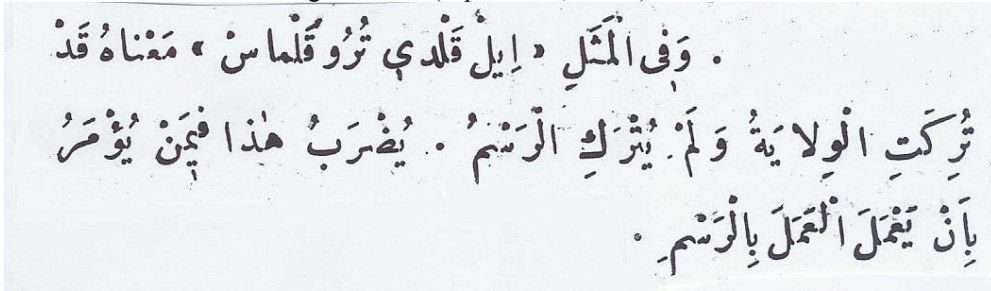 . وَفِى الْمَثَلِ « اِيلْ قَلْدىٖ تُرُو قَلْماسْ » مَعْناهُ قَدْ
تُرِكَتِ الْوِلايَةُ وَ لَمْ يُتْرَكِ الْرَسْمُ . يُضْرَبُ هٰذا فيِمَنْ يُؤْمَرُ
بِاَنْ يَعْمَلَ الْعَمَلَ بِالْرَسْمِ .